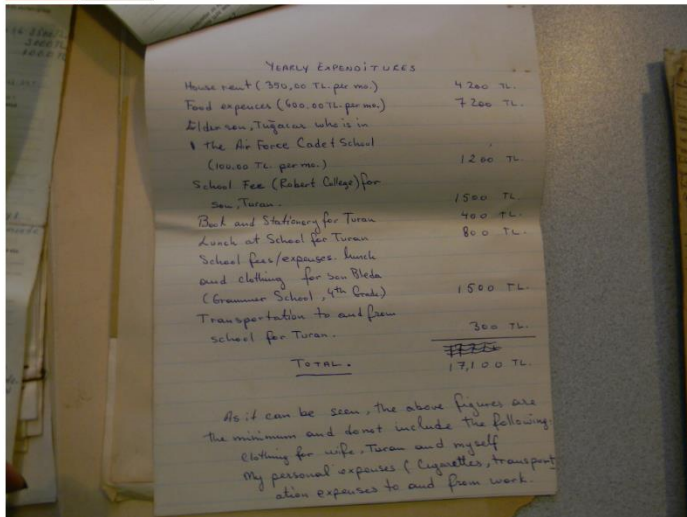 YEARLY EXPENDITURES
House rent (350,00 TL. per mo.) 4200 TL.
Food expences (600.00 TL. per mo.) 7200 TL.
Elder son, Tuğacar who is in
the Air Force Cadet School
(100.00 TL. per mo.) 1200 TL.
School Fee (Robert College) for
son, Turan. 1500 TL.
Book and Stationery for Turan 400 TL.
Lunch at School for Turan 800 TL.
School fees/expenses. lunch
and clothing for son Bleda
(Grammer School, 4th Grade) 1500 TL.
Transportation to and from
school for Turan. 300 TL.
TOTAL. 17,100 TL.
As it can be seen, the above figures are
the minimum and donot include the following:
Clothing for wife, Turan and myself
My personal expenses (Cigarettes, transport
ation expenses to and from work.